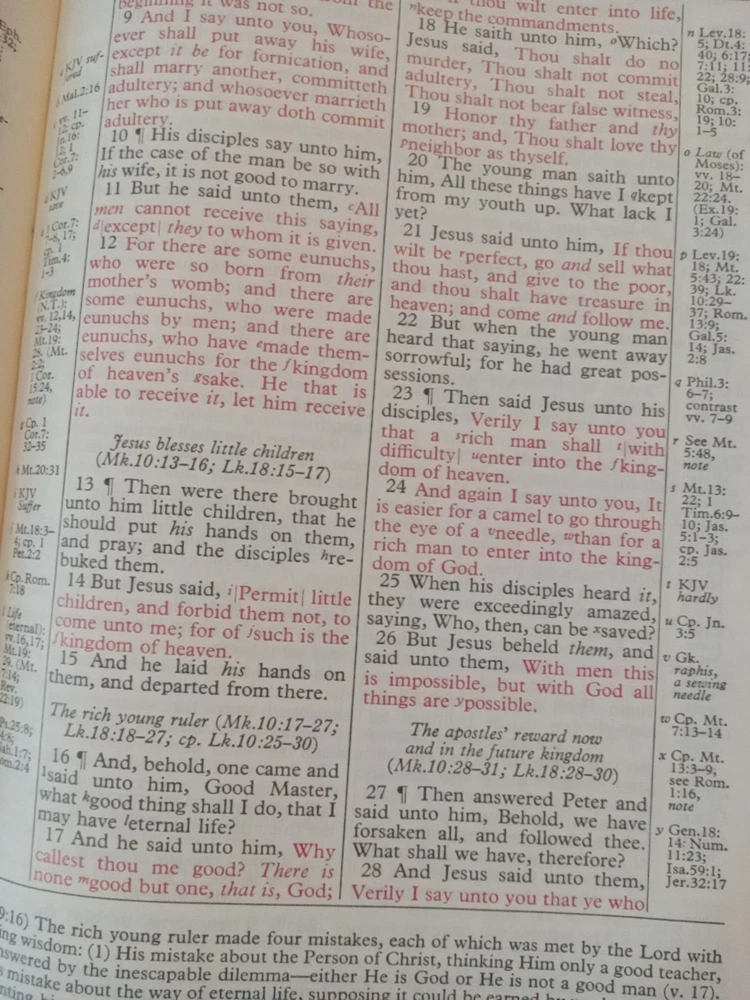 beginning it was not so.
9 And I say unto you, Whoso-
ever shall put away his wife,
except it be for fornication, and
shall marry another, committeth
adultery; and whosoever marrieth
her who is put away doth commit
adultery.
10 ¶ His disciples say unto him,
If the case of the man be so with
his wife, it is not good to marry.
11 But he said unto them, cAll
men cannot receive this saying,
d|except| they to whom it is given.
12 For there are some eunuchs,
who were so born from their
mother's womb; and there are
some eunuchs, who were made
eunuchs by men; and there are
eunuchs, who have emade them-
selves eunuchs for the fkingdom
of heaven's gsake. He that is
able to receive it, let him receive
it.
Jesus blesses little children
(Mk.10:13–16; Lk.18:15–17)
13 ¶ Then were there brought
unto him little children, that he
should put his hands on them,
and pray; and the disciples hre-
buked them.
14 But Jesus said, i|Permit| little
children, and forbid them not, to
come unto me; for of jsuch is the
fkingdom of heaven.
15 And he laid his hands on
them, and departed from there.
The rich young ruler (Mk.10:17–27;
Lk.18:18–27; cp. Lk.10:25–30)
16 ¶ And, behold, one came and
said unto him, Good Master,
what kgood thing shall I do, that I
may have leternal life?
17 And he said unto him, Why
callest thou me good? There is
none mgood but one, that is, God;
thou wilt enter into life,
nkeep the commandments.
18 He saith unto him, oWhich?
Jesus said, Thou shalt do no
murder, Thou shalt not commit
adultery, Thou shalt not steal,
Thou shalt not bear false witness,
19 Honor thy father and thy
mother; and, Thou shalt love thy
pneighbor as thyself.
20 The young man saith unto
him, All these things have I qkept
from my youth up. What lack I
yet?
21 Jesus said unto him, If thou
wilt be rperfect, go and sell what
thou hast, and give to the poor,
and thou shalt have treasure in
heaven; and come and follow me.
22 But when the young man
heard that saying, he went away
sorrowful; for he had great pos-
sessions.
23 ¶ Then said Jesus unto his
disciples, Verily I say unto you
that a srich man shall t|with
difficulty| uenter into the fking-
dom of heaven.
24 And again I say unto you, It
is easier for a camel to go through
the eye of a vneedle, wthan for a
rich man to enter into the king-
dom of God.
25 When his disciples heard it,
they were exceedingly amazed,
saying, Who, then, can be xsaved?
26 But Jesus beheld them, and
said unto them, With men this
is impossible, but with God all
things are ypossible.
The apostles' reward now
and in the future kingdom
(Mk.10:28–31; Lk.18:28–30)
27 ¶ Then answered Peter and
said unto him, Behold, we have
forsaken all, and followed thee.
What shall we have, therefore?
28 And Jesus said unto them,
Verily I say unto you that ye who
n Lev.18:
5; Dt.4:
40; 6:17;
7:11; 11:
22; 28:9;
Gal.3:
10; cp.
Rom.3:
19; 10:
1–5
o Law (of
Moses):
vv. 18–
20; Mt.
22:24.
(Ex.19:
1; Gal.
3:24)
p Lev.19:
18; Mt.
5:43; 22:
39; Lk.
10:29–
37; Rom.
13:9;
Gal.5:
14; Jas.
2:8
q Phil.3:
6–7;
contrast
vv. 7–9
r See Mt.
5:48,
note
s Mt.13:
22; 1
Tim.6:9–
10; Jas.
5:1–3;
cp. Jas.
2:5
t KJV
hardly
u Cp. Jn.
3:5
v Gk.
raphis,
a sewing
needle
w Cp. Mt.
7:13–14
x Cp. Mt.
13:3–9,
see Rom.
1:16,
note
y Gen.18:
14; Num.
11:23;
Isa.59:1;
Jer.32:17
KJV suf-
Mal.2:16
KJV
note
Kingdom
(N.T.):
vv. 12,14,
23–24;
Mt.19:
g Cp. 1
Cor.7:
32–35
h Mt.20:31
i KJV
Suffer
j Mt.18:3–
4; cp. 1
Pet.2:2
k Cp. Rom.
7:18
l Life
(eternal):
vv.16,17;
Mt.19:
29. (Mt.
7:14;
Rev.
22:19)
9:16) The rich young ruler made four mistakes, each of which was met by the Lord with
wisdom: (1) His mistake about the Person of Christ, thinking Him only a good teacher,
answered by the inescapable dilemma—either He is God or He is not a good man (v. 17).
mistake about the way of eternal life, supposing it could be earned